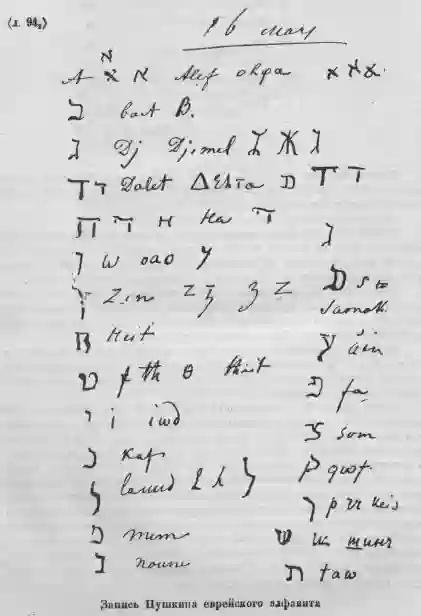 (л. 94₂)
16 мая
א
A א א Alef окра א א א
ב bait B.
ג Dj Djimel Ж ג
ד ד Dalet Дельта ד ד ד
ה ה н На ה
ו w оао у
ז Zin z з z
ח Heit
ט ф th θ theit
י i iwd
כ Kaf
ל lamed ל
מ mim
נ noune
ג
ס s
Samek
ע áin
פ fa
צ som
ק qwof
ר р rr reis
ש ш шинъ
ת taw
Запись Пушкина еврейского алфавита